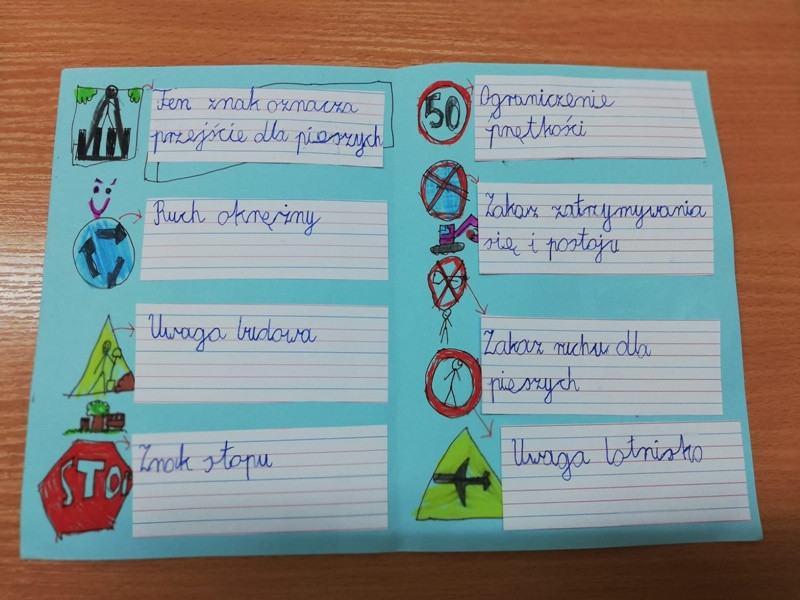 Ten znak oznacza
przejście dla pieszych
Ruch okrężny
Uwaga budowa
STOP
Znak stopu
50
Ograniczenie
prętkości
Zakaz zatrzymywania
się i postoju
Zakaz ruchu dla
pieszych
Uwaga lotnisko